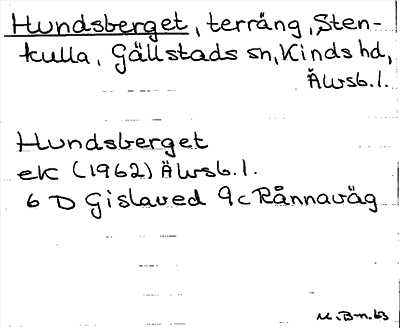 Hundsberget, terräng, Sten-
kulla, Gällstads sn, Kinds hd,
Älvsb. l.
Hundsberget
ek (1962) Älvsb. l.
6 D Gislaved 9c Rånnaväg
M. B-n. 63